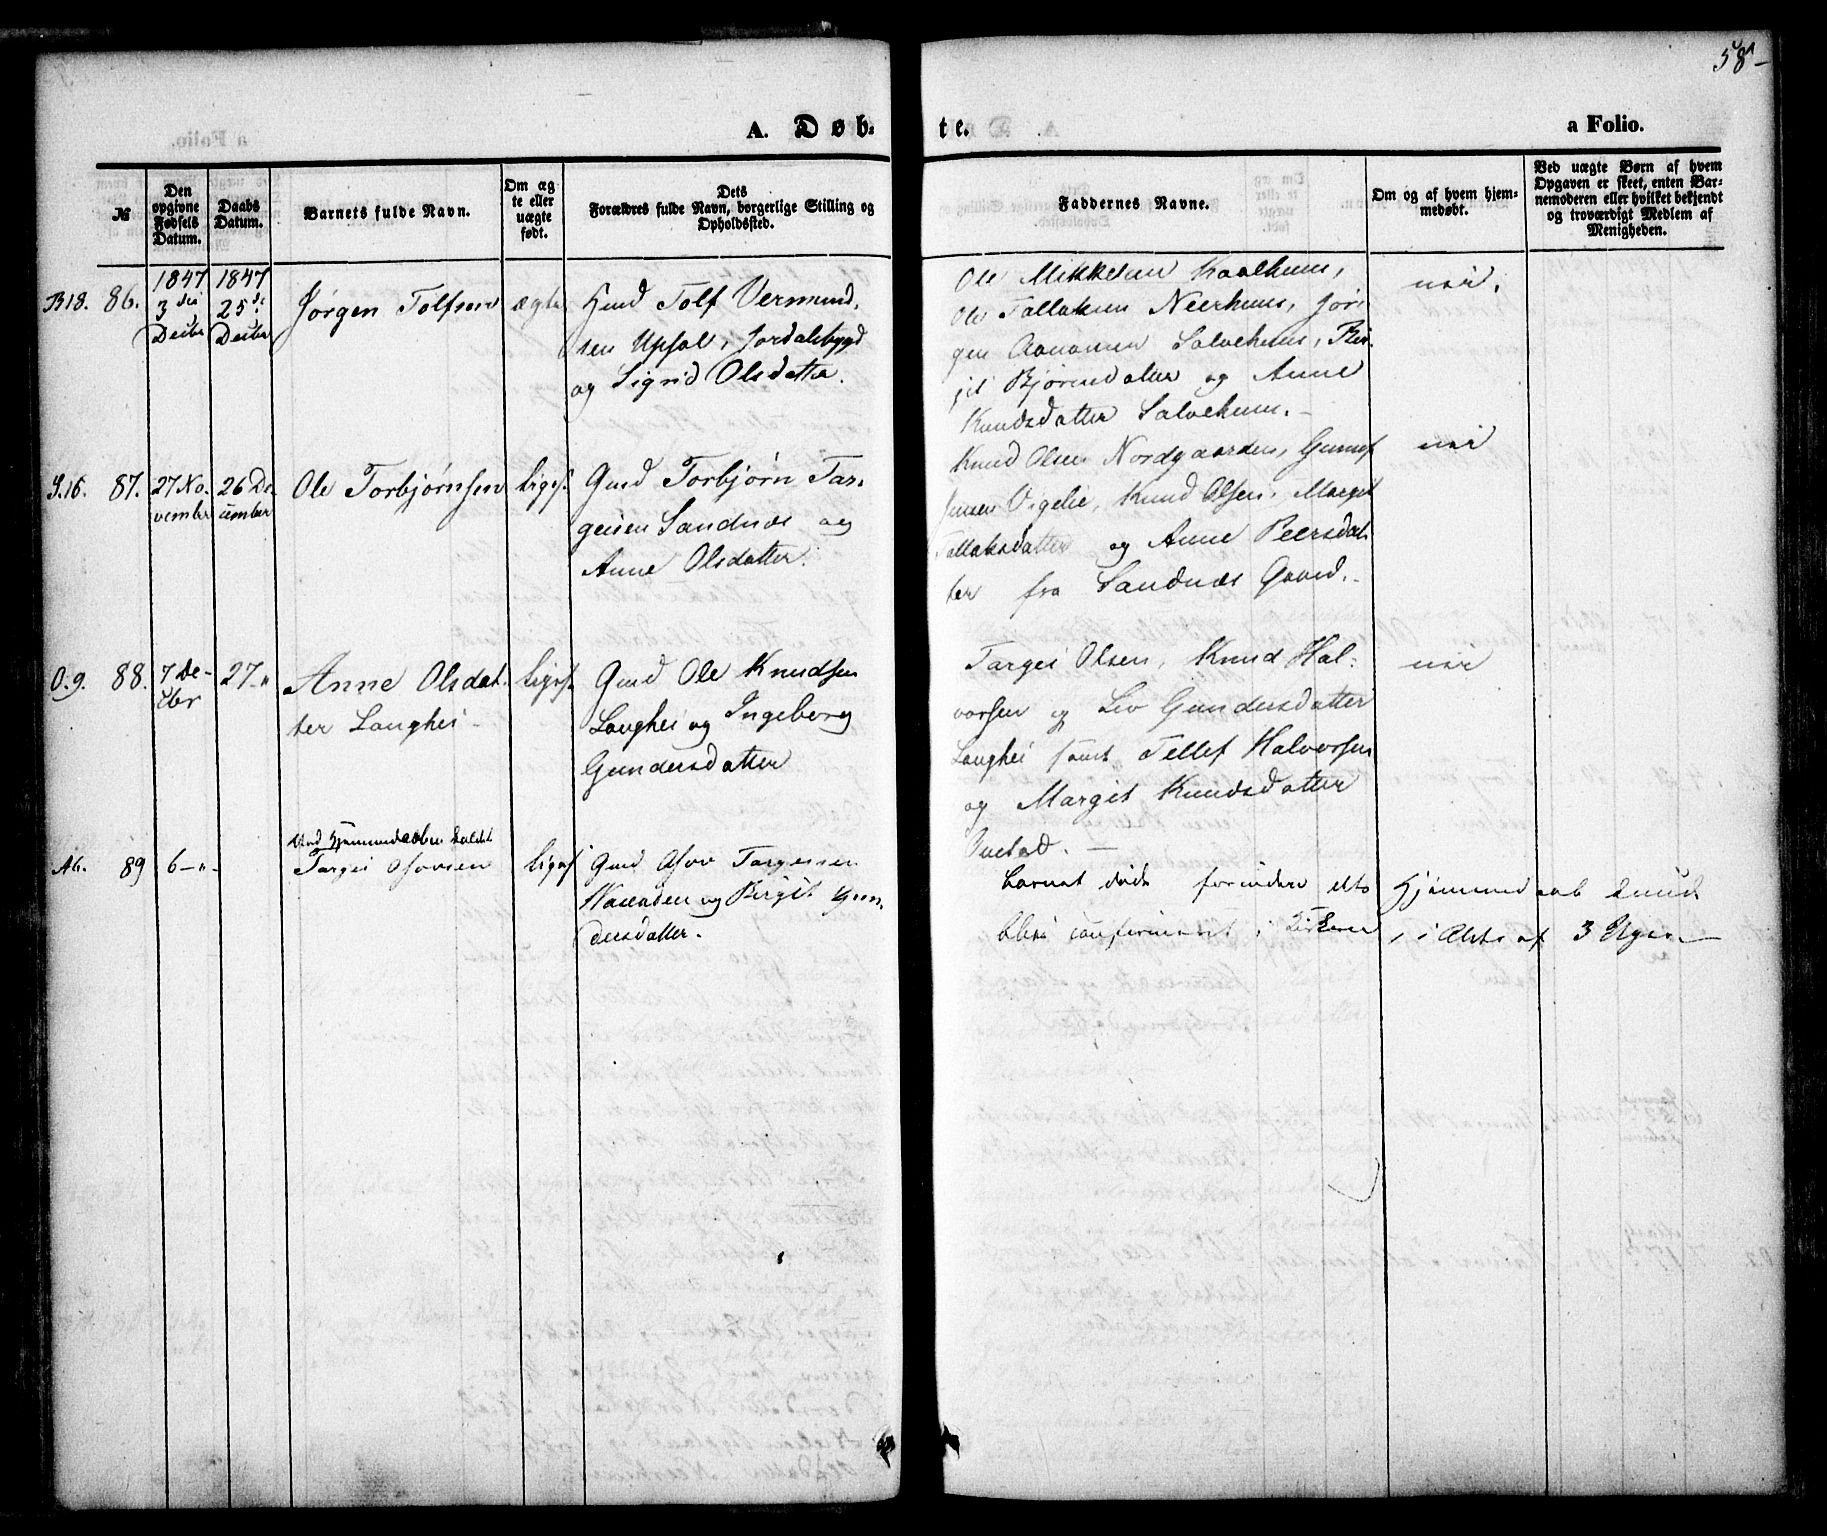 58
A. Døb-
te.
a Folio.
№
Den opgivne Fødsels Datum.
Daabs Datum.
Barnets fulde Navn.
Om ægte eller uægte født.
Dets Forældres fulde Navn, borgerlige Stilling og Opholdssted.
Faddernes Navne.
Om og af hvem hjemmedøbt.
Ved uægte Børn af hvem Opgaven er skeet, enten Barnemoderen eller hvilket bekjendt og troværdigt Medlem af Menigheden.
B18. 86.
1847
3die
Decbr
1847
25de
Decbr
Jørgen Tolfsen
ægte
Gmd Tolf Vermund-
sen Upsal, Jordalsbygd
og Sigrid Olsdatter.
Ole Mikkelsen Kaalhuus,
Ole Tallaksen Neerhuus, Jør-
gen Aanonsen Salvehuus, Bir-
jit Bjørensdatter og Anne
Knudsdatter Salvehuus.
nei.
S.16. 87.
27 No-
vember
26 De-
cember
Ole Torbjørnsen
Liges.
Gmd Torbjørn Tar-
geisen Sandnæs og
Anne Olsdatter.
Knud Olsen Nordgaarden, Gunuf
Vigelie, Knud Olsen, Margit
Tallaksdatter og Anne Peersdat-
ter fra Sandnæs Gaard.
nei
O.9. 88.
7 De-
cbr
27 "
Anne Olsdat-
ter Laughei
Liges.
Gmd Ole Knudsen
Laughei og Ingeborg
Gundersdatter
Targei Olsen, Knud Hal-
vorsen og Liv Gundersdatter
Laughei samt Tellef Halvorsen
og Margit Knudsdatter
nei
A6. 89
6 - " -
Ved Hjemmedaaben kaldet
Targei Ofvesen
Ligés
Gmd Targeisen
og Birgit Gun-
dersdatter.
Barnet døde forinden dets Hjemmedaab kunde
blive confirmeret i Kirken, i Alder af 3 Uger.